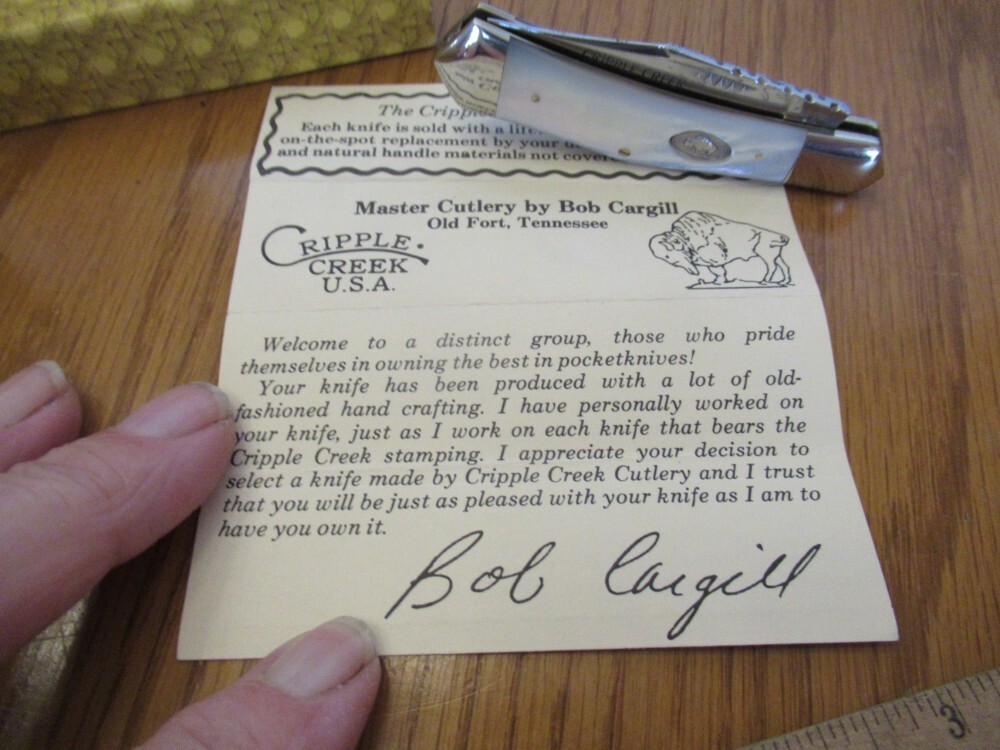 The
Each knife is sold with a
on-the-spot replacement by your
and natural handle materials not
CRIPPLE CREEK
Master Cutlery by Bob Cargill
Old Fort, Tennessee
CRIPPLE
CREEK
U.S.A.
Welcome to a distinct group, those who pride
themselves in owning the best in pocketknives!
Your knife has been produced with a lot of old-
fashioned hand crafting. I have personally worked on
your knife, just as I work on each knife that bears the
Cripple Creek stamping. I appreciate your decision to
select a knife made by Cripple Creek Cutlery and I trust
that you will be just as pleased with your knife as I am to
have you own it.
Bob Cargill
3